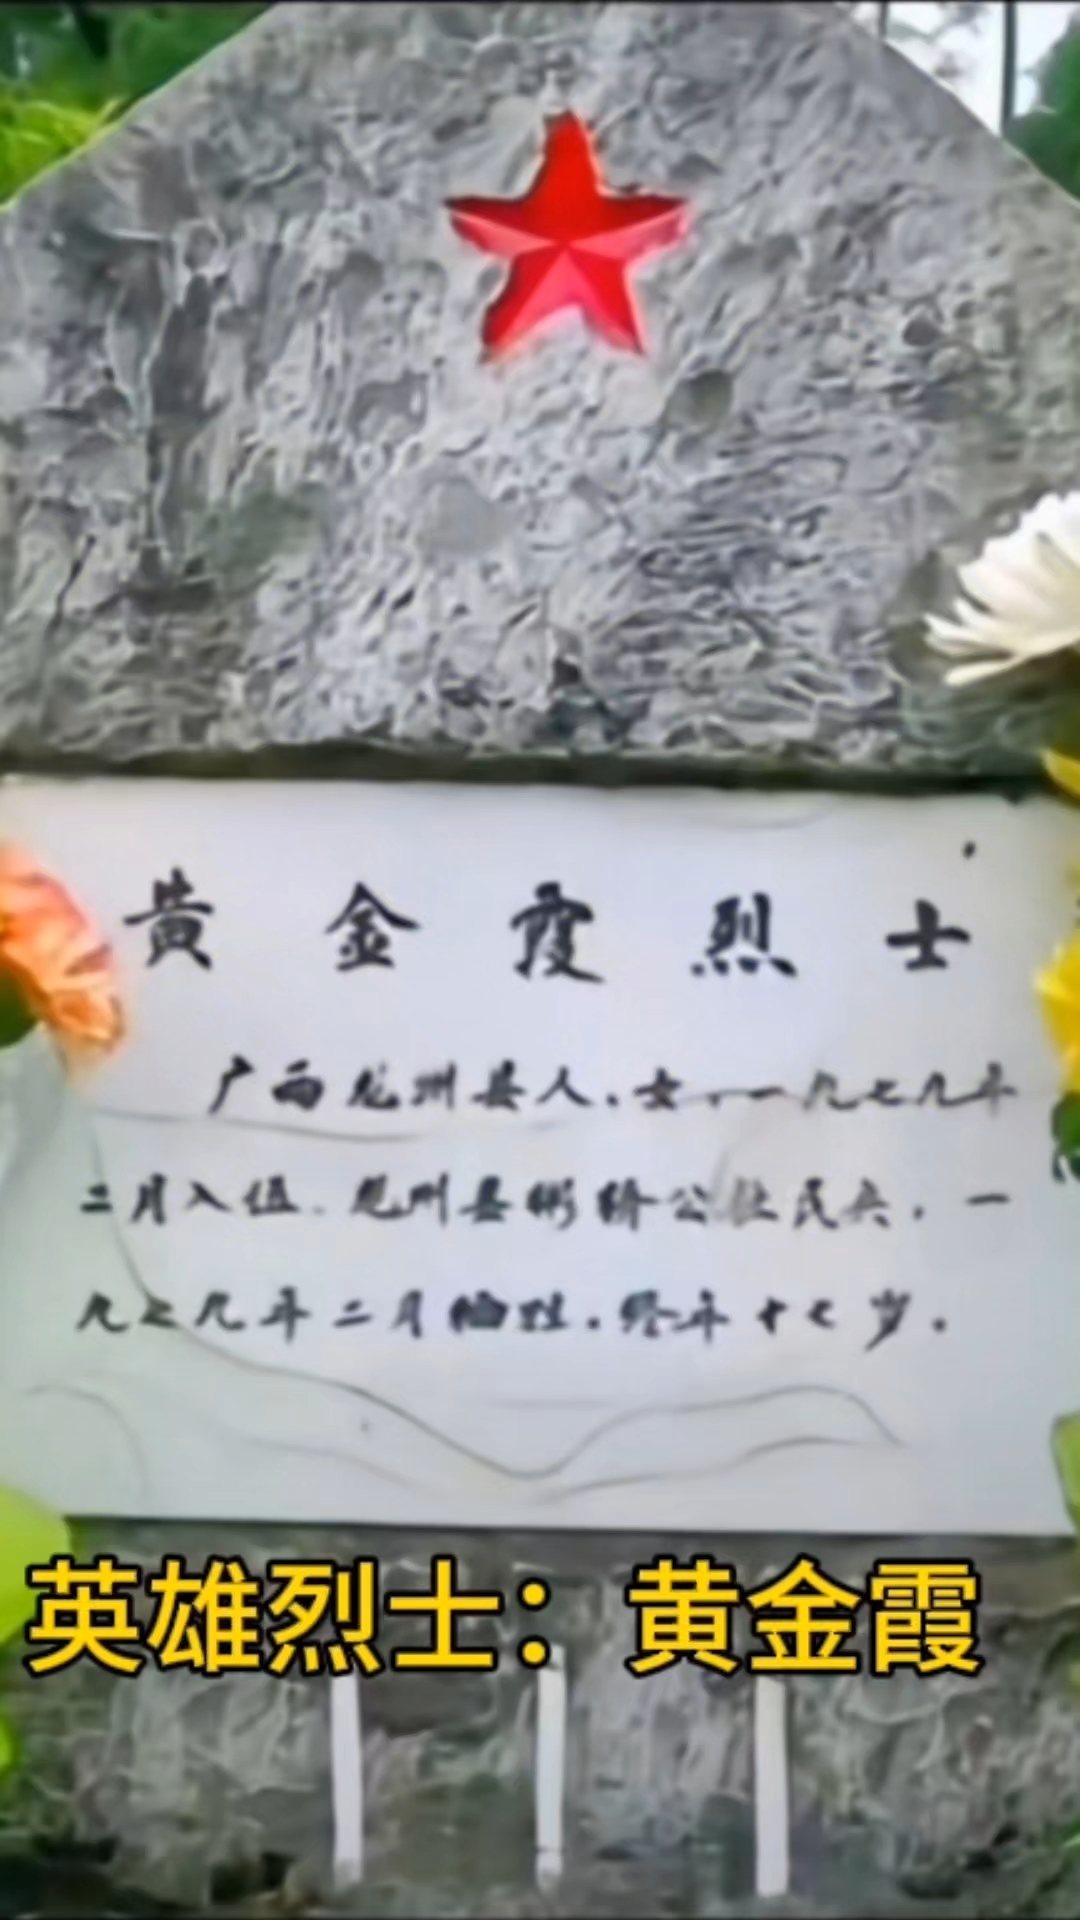 黄金霞烈士
广西龙州县人，女，一九七九年
二月入伍，龙州县彬桥公社民兵，一
九七九年二月牺牲，终年十七岁。
英雄烈士：黄金霞